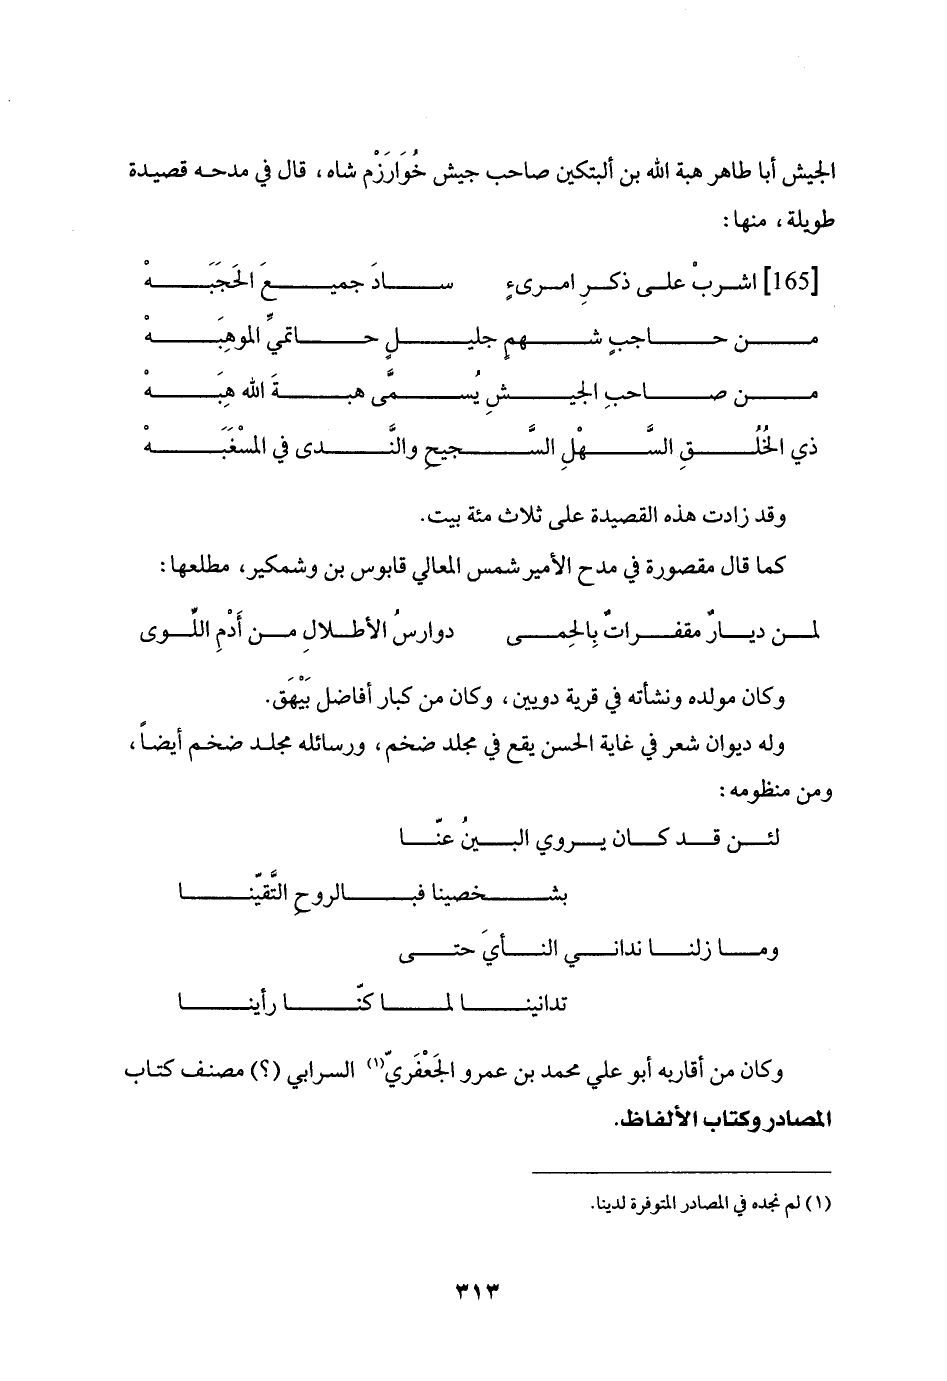 الجيش أبا طاهر هبة الله بن ألبتكين صاحب جيش خُوَارَزْم شاه، قال في مدحه قصيدة
طويلة، منها:
[165] اشربْ على ذكرِ امرىءٍ سادَ جميعَ الحَجَبَهْ
من حاجبٍ شهمٍ جليلٍ حاتميِّ الموهِبَهْ
من صاحبِ الجيشِ يُسمَّى هبةَ الله هِبَهْ
ذي الخُلُقِ السَّهْلِ السَّجيحِ والنَّدى في المسْغَبَهْ
وقد زادت هذه القصيدة على ثلاث مئة بيت.
كما قال مقصورة في مدح الأمير شمس المعالي قابوس بن وشمكير، مطلعها:
لمن ديارٌ مقفراتٌ بِالحِمى دوارسُ الأطلالِ من أَدْمِ اللِّوى
وكان مولده ونشأته في قرية دويين، وكان من كبار أفاضل بَيْهَق.
وله ديوان شعر في غاية الحسن يقع في مجلد ضخم، ورسائله مجلد ضخم أيضاً،
ومن منظومه:
لئن قد كان يروي البينُ عنّا
بشخصينا فبالروحِ التَّقيّنا
وما زلنا نداني النأيَ حتى
تدانينا لما كنّا رأينا
وكان من أقاربه أبو علي محمد بن عمرو الجَعْفَريّ(١) السرابي (؟) مصنف كتاب
المصادر وكتاب الألفاظ.
(١) لم نجده في المصادر المتوفرة لدينا.
٣١٣